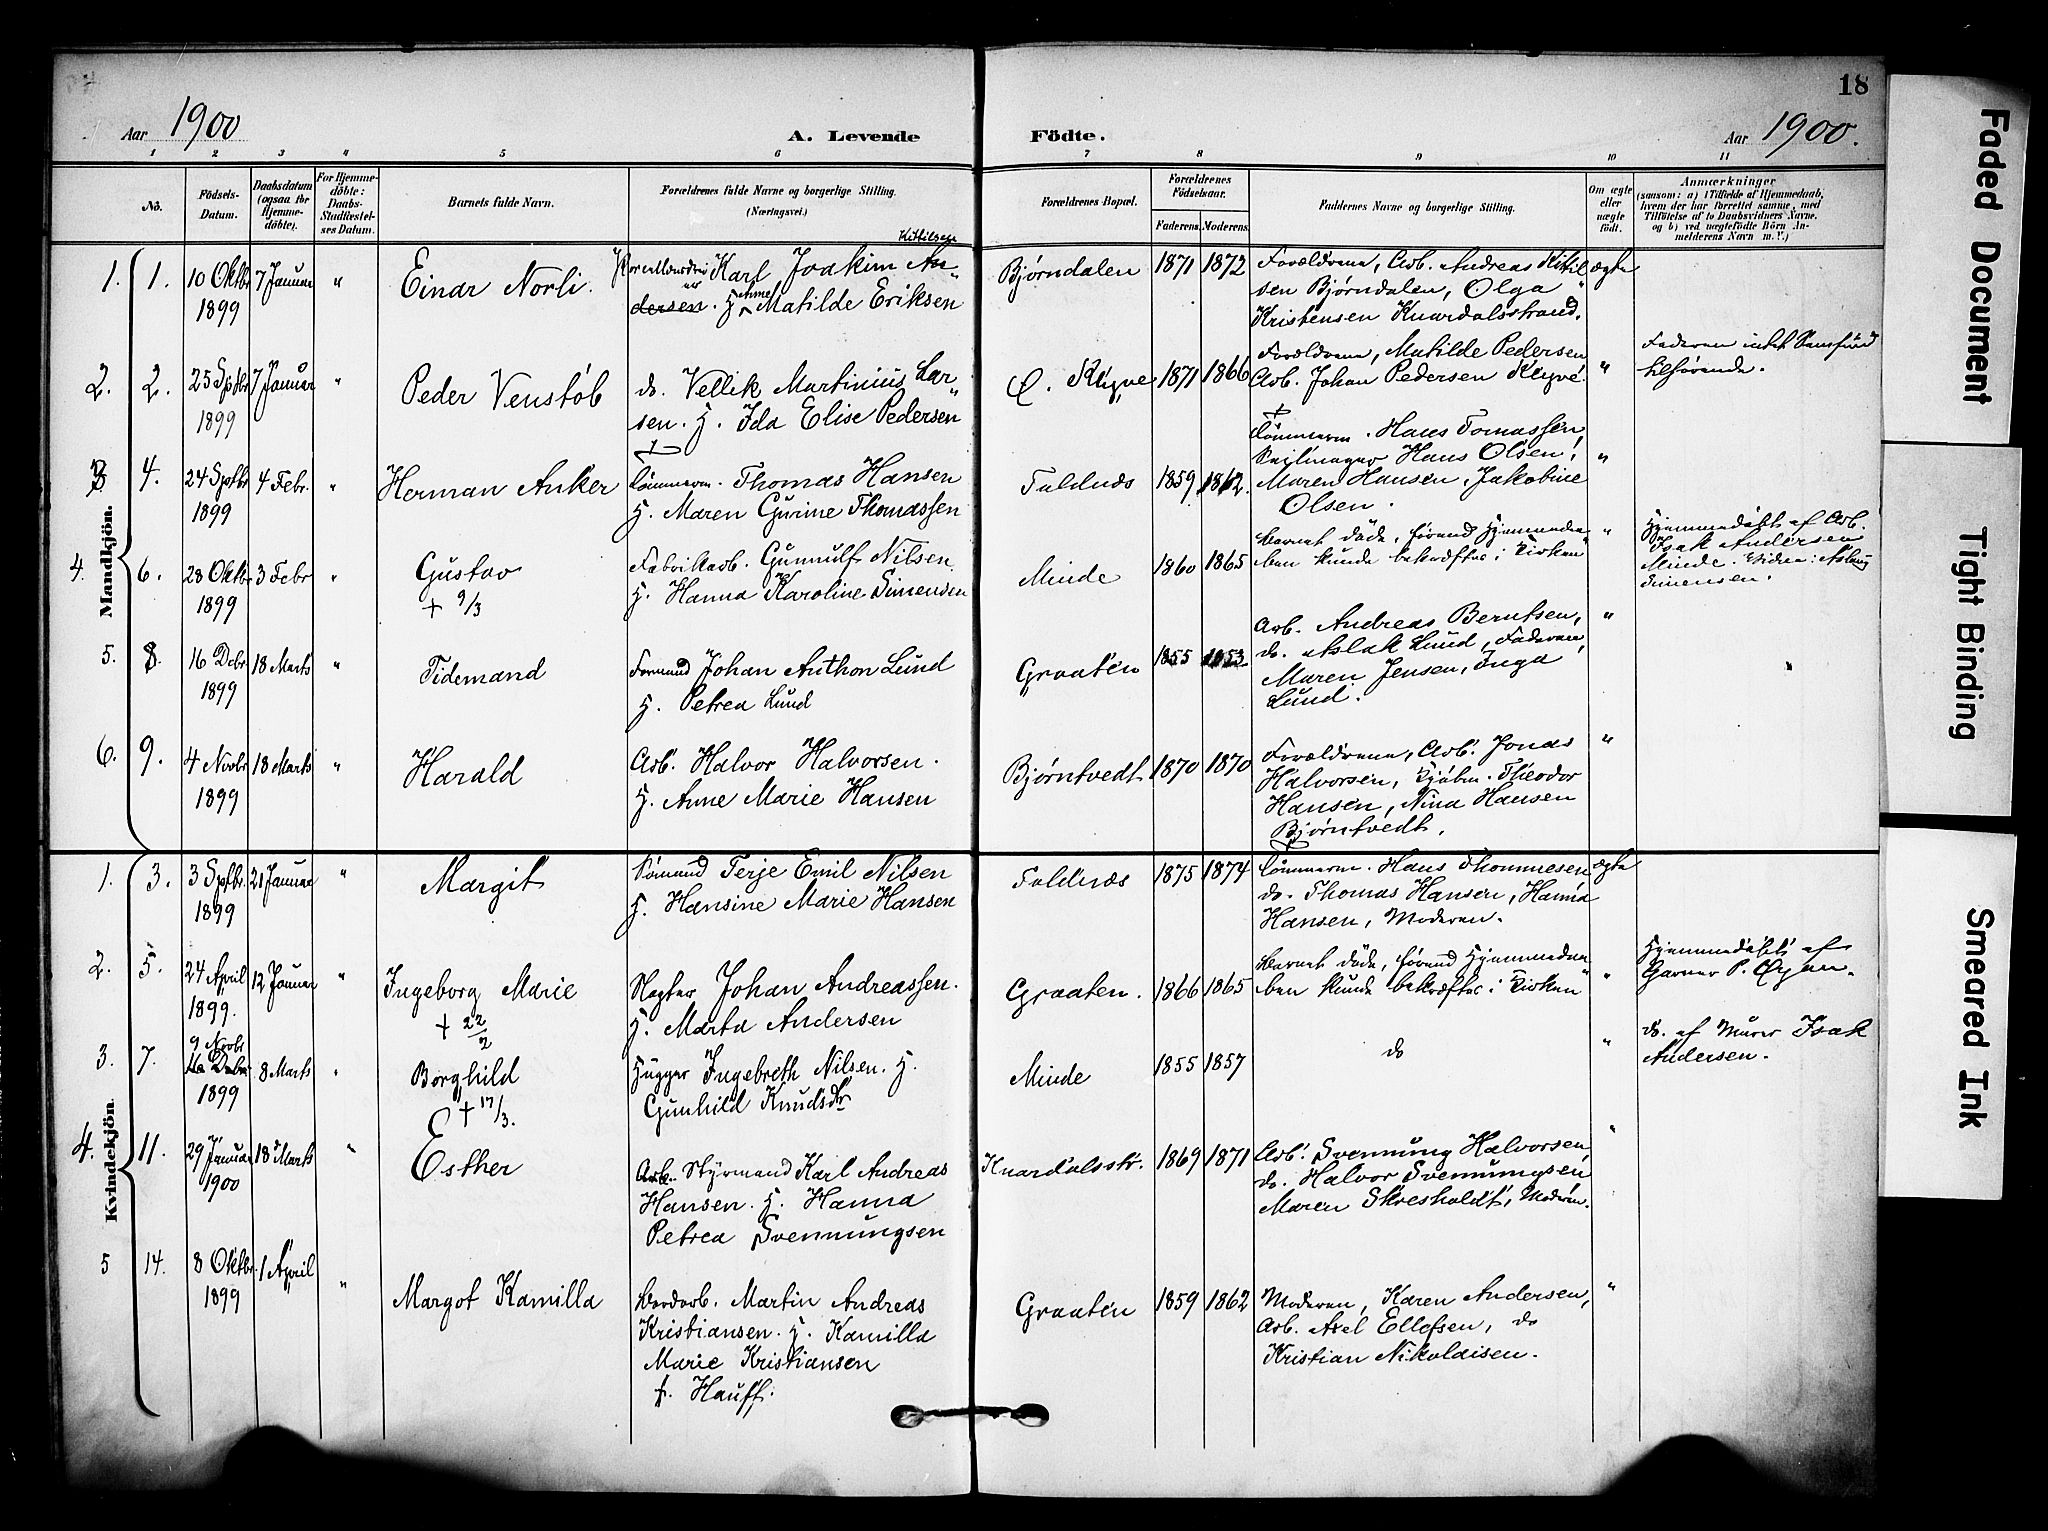 18
Aar 1900
A. Levende
Födte.
Aar 1900.
1 2 3 4 5 6 7 8 9 10 11
No.
Födsels-
Datum.
Daabsdatum
(ogsaa for
Hjemme-
döbte).
For Hjemme-
döbte:
Daabs-
Stadfæstel-
ses Datum.
Barnets fulde Navn.
Forældrenes fulde Navne og borgerlige Stilling.
(Næringsvei.)
Forældrenes Bopæl.
Forældrenes
Födselsaar.
Faderens. Moderens.
Faddernes Navne og borgerlige Stilling.
Om ægte
eller
uægte
födt.
Anmærkninger
(saasom: a) i Tilfælde af Hjemmedaab,
hvem der har forrettet samme, med
Tilföielse af to Daabsvidners Navne,
og b) ved uægtefödte Börn An-
melderens Navn m. V.)
Mandkjön.
1. 1. 10 Oktbr 1899 7 Januar " Einar Norli.
Kittilsen
Karl Joakim An-
dersen. H. Anne Matilde Eriksen
Bjørndalen 1871 1872
Forældrene, Arb. Andreas Kitil
sen Bjørndalen, Olga
Kristensen Knardalsstrand.
ægte
2. 2. 25 Sptbr 1899 7 Januar " Peder Venstöb
do. Vellik Martinius Lar-
sen. H. Ida Elise Pedersen
Ø. Klyve 1871 1866
Forældrene, Matilde Pedersen
Arb. Johan Pedersen Klyve.
"
Faderen intet Samfund
tilhørende.
3 4. 24 Sptbr 1899 4 Febr. " Herman Anker
Tömmerm. Thomas Hansen
H. Maren Gurine Thomassen
Faldnæs 1859 1862.
Tömmerm. Hans Tomassen,
Seilmager Hans Olsen,
Maren Hansen, Jakobine
Olsen.
"
4. 6. 28 Oktbr 1899 3 Febr " Gustav
+ 9/3
Fabrikarb. Gunnulf Nilsen
H. Hanna Karoline Simensen
Minde 1860 1865
Barnet döde, førend Hjemmedaa-
ben kunde bekræftes i Kirken
"
Hjemmedöbt af Arb.
Isak Andersen
Minde. Vidne: Aslaug
Simensen.
5. 8. 16 Dcbr 1899 18 Marts " Tidemand
Formand Johan Anthon Lund
H. Petrea Lund
Graaten 1855 1853.
Arb. Andreas Berntsen,
do. Aslak Lund, Faderen,
Maren Jensen, Inga
Lund.
"
"
6. 9. 4 Novbr 1899 18 Marts " Harald
Arb. Halvor Halvorsen.
H. Anne Marie Hansen
Bjørntvedt 1870 1870
Forældrene, Arb. Jonas
Halvorsen, Kjöbm. Theodor
Hansen, Nina Hansen
Bjørntvedt.
"
Kvindekjön.
1. 3. 3 Sptbr. 1899 21 Januar " Margit
Sömand Terje Emil Nilsen
H. Hansine Marie Hansen
Faldnæs 1875 1874
Tömmerm. Hans Thommesen
do. Thomas Hansen, Hanna
Hansen, Moderen.
ægte
2. 5. 24 April 1899. 12 Januar " Ingeborg Marie
+ 22/2
Slagter Johan Andreassen.
H. Marta Andersen
Graaten. 1866 1865
Barnet döde, førend Hjemmedaa-
ben kunde bekræftes i Kirken
"
Hjemmedöbt af
Garver P. Øyen.
3. 7. 9 Novbr 16 Dcbr 1899 8 Marts " Borghild
+ 17/3.
Hugger Ingebreth Nilsen. H.
Gunhild Knudsdr
Minde 1855 1857
do
"
do. af Murer Isak
Andersen.
4. 11. 29 Januar 1900 18 Marts " Esther
Arb. Styrmand Karl Andreas
Hansen. H. Hanna
Petrea Svennungsen
Knardalsstr. 1869 1871
Arb. Svennung Halvorsen,
do. Halvor Svennungsen,
Maren Skresholdt, Moderen.
"
5 14. 8 Oktbr. 1899 1 April " Margot Kamilla
Martin Andreas
Kristiansen. H. Kamilla
Marie Kristiansen
f. Hauff.
Graaten 1859 1862
Moderen, Karen Andersen,
Arb. Axel Ellefsen, do
Kristian Nikolaisen.
"
Faded Document
Tight Binding
Smeared Ink